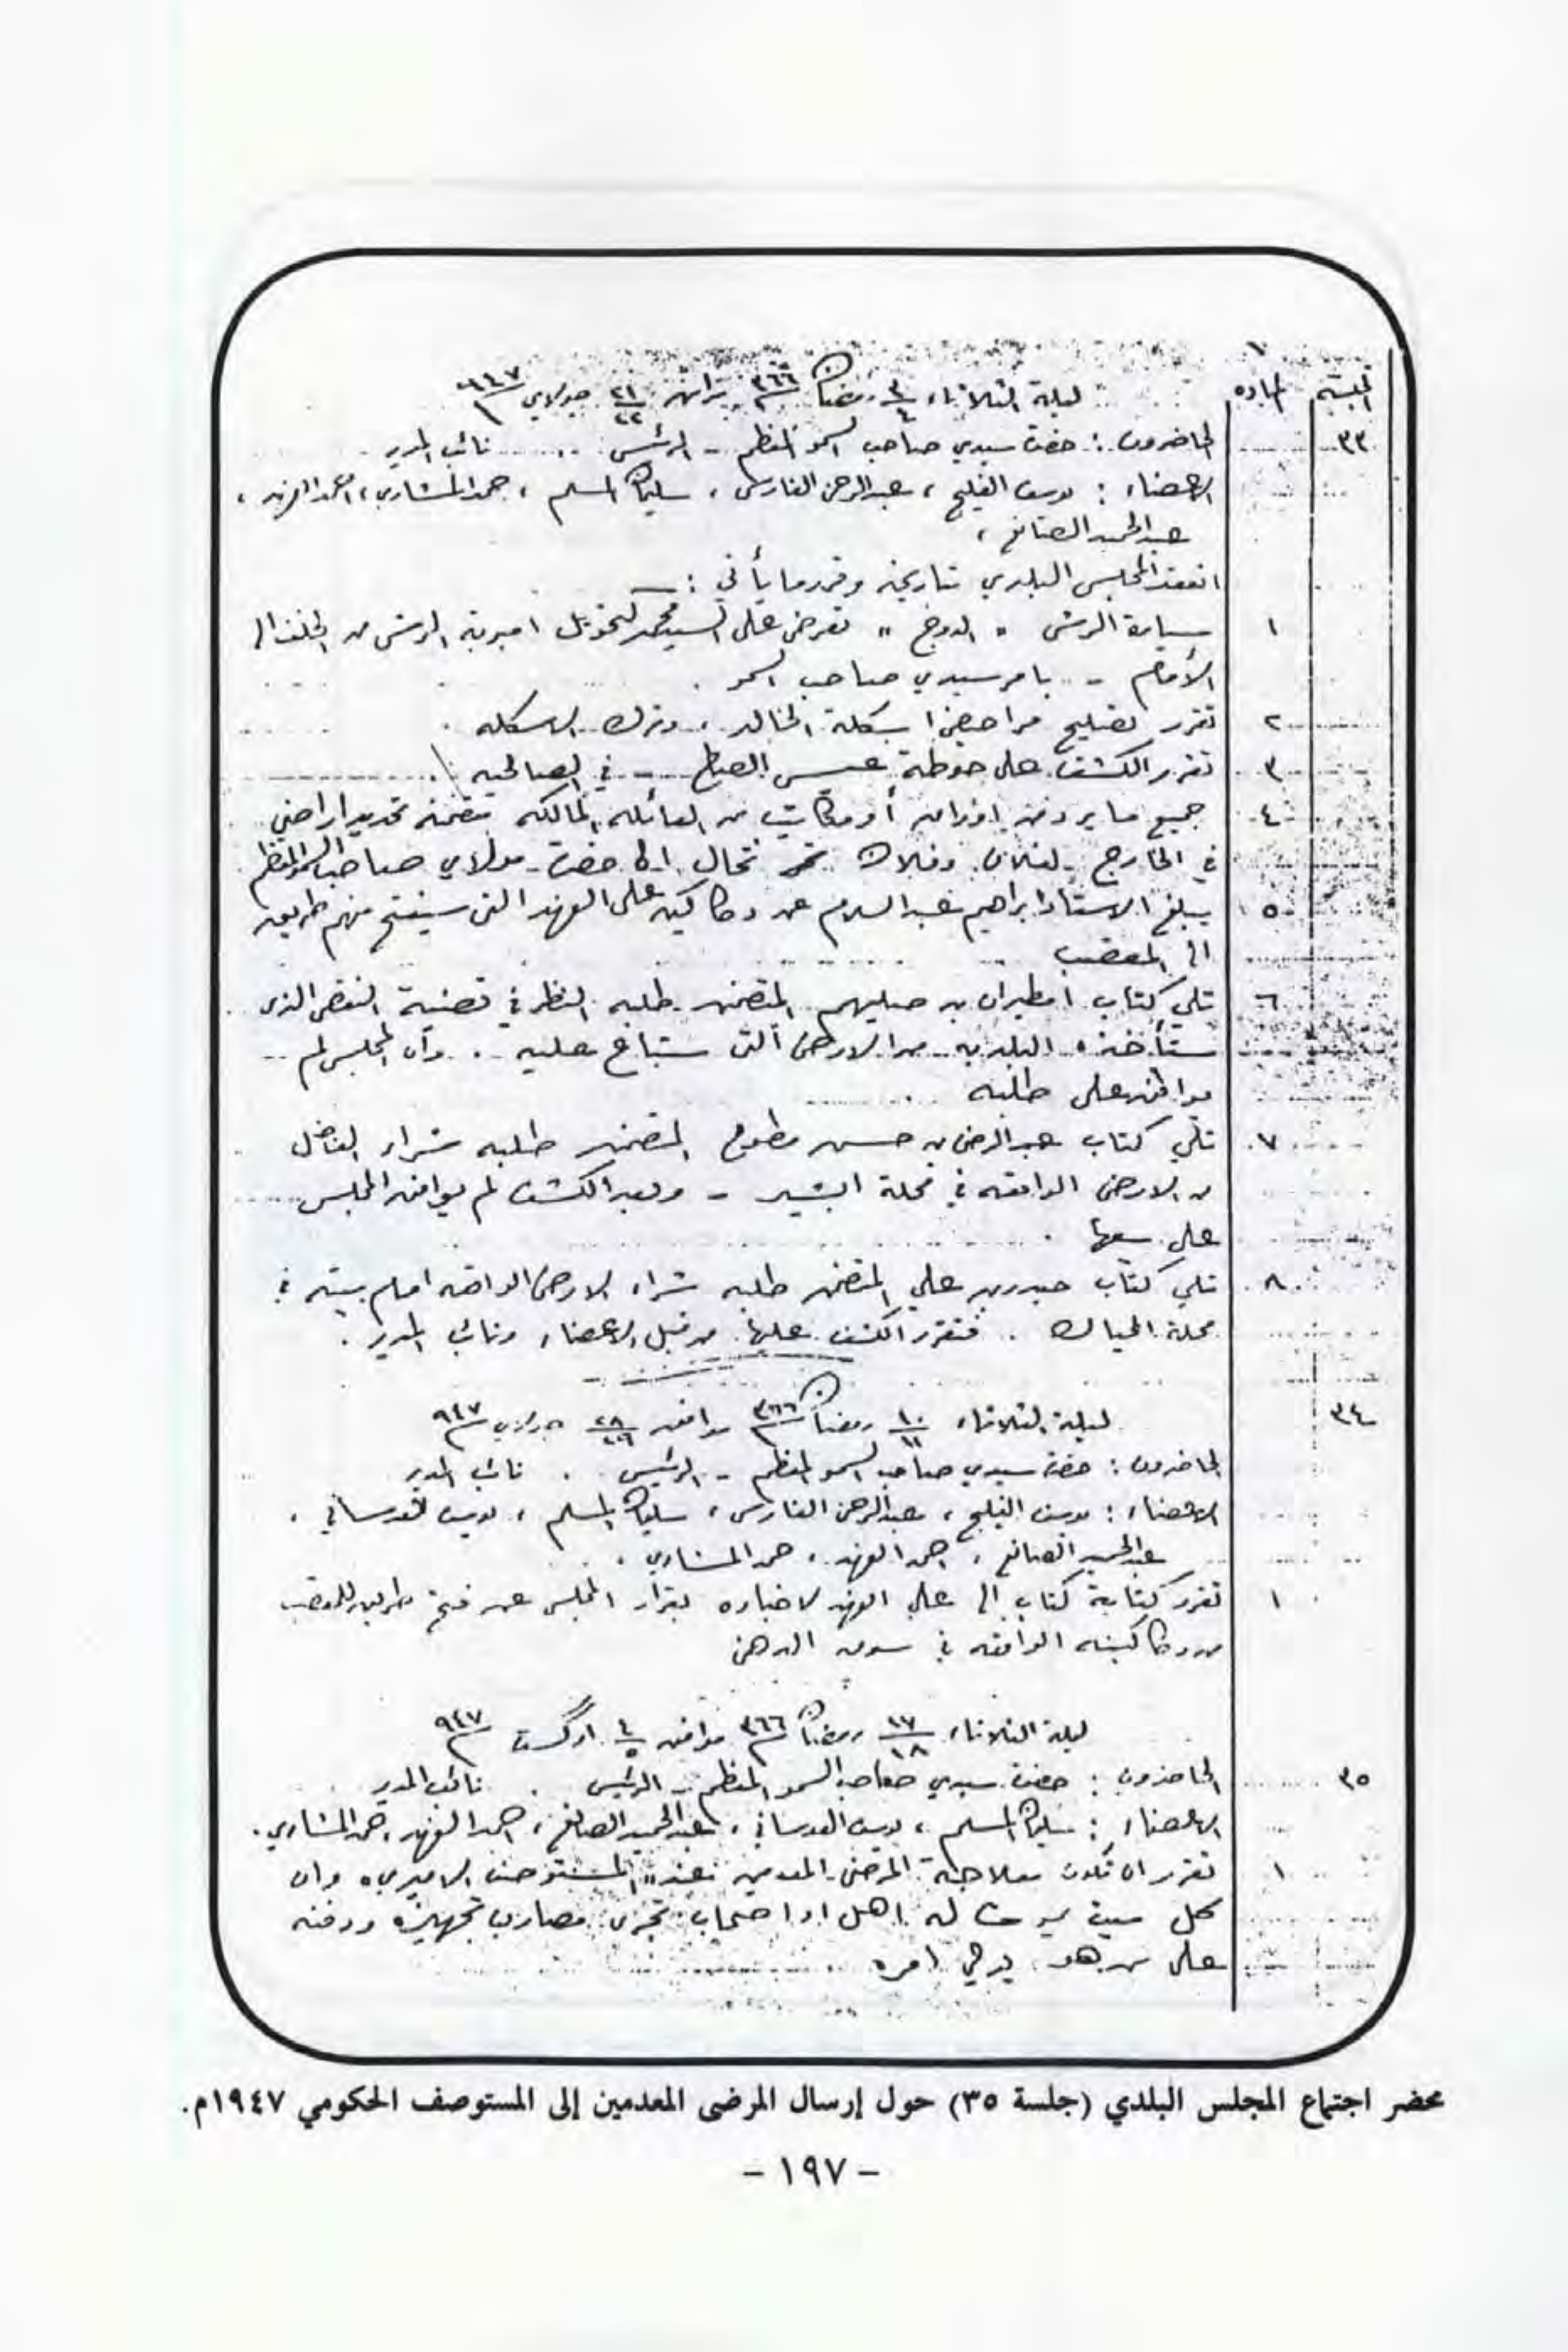 الجلسة المادة
ليلة الثلاثاء ٣/٤ رمضان ٣٦٦ ٢١/٢٢ جولاي ٩٤٧
٣٣ الحاضرون : حضرت سيدي صاحب السمو المعظم - الرئيس . نائب المدير
الاعضاء : يوسف الفليج ، عبدالرحمن الفارس ، سليمان المسلم ، حمد المشاري ، احمد الفهد ،
عبدالحميد الصانع ،
انعقد المجلس البلدي بتاريخه وقرر ما يأتي : ـــ
١ سيارة الرش " الدوج " تعرض على السيد محمد لتحويل الرش من الخلف الى
الأمام - بامر سيدي صاحب السمو .
٢ تقرر تصليح مراحيض اسكلة الخالد ، وترك الاسكله .
٣ تقرر الكشف على حوطة الصباح - في الصالحيه .
٤ جميع ما يرد من اوراق أو مكاتيب من العائله المالكه متضمنه تحديد اراضي
في الخارج - لفلان وفلان تحال الى حضرت مولاي صاحب السمو المعظم
٥ يبلغ الاستاذ ابراهيم عبدالسلام عن دكاكين على الفهد التى سيفتح منهم طريق
الى المقصب
٦ تلي كتاب بن المتضمن طلبه النظر في قضية النقص الذى
ستأخذه البلديه من الارض التى ستباع عليه . وان المجلس لم
يوافق على طلبه
٧ تلي كتاب عبدالرضى بن حسن المتضمن طلبه شراء الفاضل
من الارض الواقعه في محلة - وبعد الكشف لم يوافق المجلس
على بيعها .
٨ تلي كتاب حيدر بن علي المتضمن طلبه شراء الارض الواقعه امام بيته في
محلة الحياك . فتقرر الكشف عليها من قبل الاعضاء ونائب المدير .
٣٤ ليلة الثلاثاء ١٠/١١ رمضان ٣٦٦ موافق ٢٨/٢٩ جولاي ٩٤٧
الحاضرون : حضرت سيدي صاحب السمو المعظم - الرئيس . نائب المدير
الاعضاء : يوسف الفليج ، عبدالرحمن الفارس ، سليمان المسلم ، يوسف العدساني ،
عبدالحميد الصانع ، احمد الفهد ، حمد المشاري .
١ تقرر كتابة كتاب الى علي الفهد لاخباره بقرار المجلس عن فتح طريق للمقصب
من دكاكينه الواقعه في سوق الدهن
ليلة الثلاثاء ١٧/١٨ رمضان ٣٦٦ موافق ٤/٥ اوگست ٩٤٧
٣٥ الحاضرون : حضرت سيدي صاحب السمو المعظم - الرئيس . نائب المدير
الاعضاء : سليمان المسلم ، يوسف العدساني ، عبدالحميد الصانع ، احمد الفهد ، حمد المشاري .
١ تقرر ان تكون معالجة المرضى المعدمين عند " المستوصف الاميري " وان
كل ميت يموت له اهل او اصحاب تجرى مصاريف تجهيزه ودفنه
على من هو يرجى امره
محضر اجتماع المجلس البلدي (جلسة ٣٥) حول إرسال المرضى المعدمين إلى المستوصف الحكومي ١٩٤٧م.
- ١٩٧ -